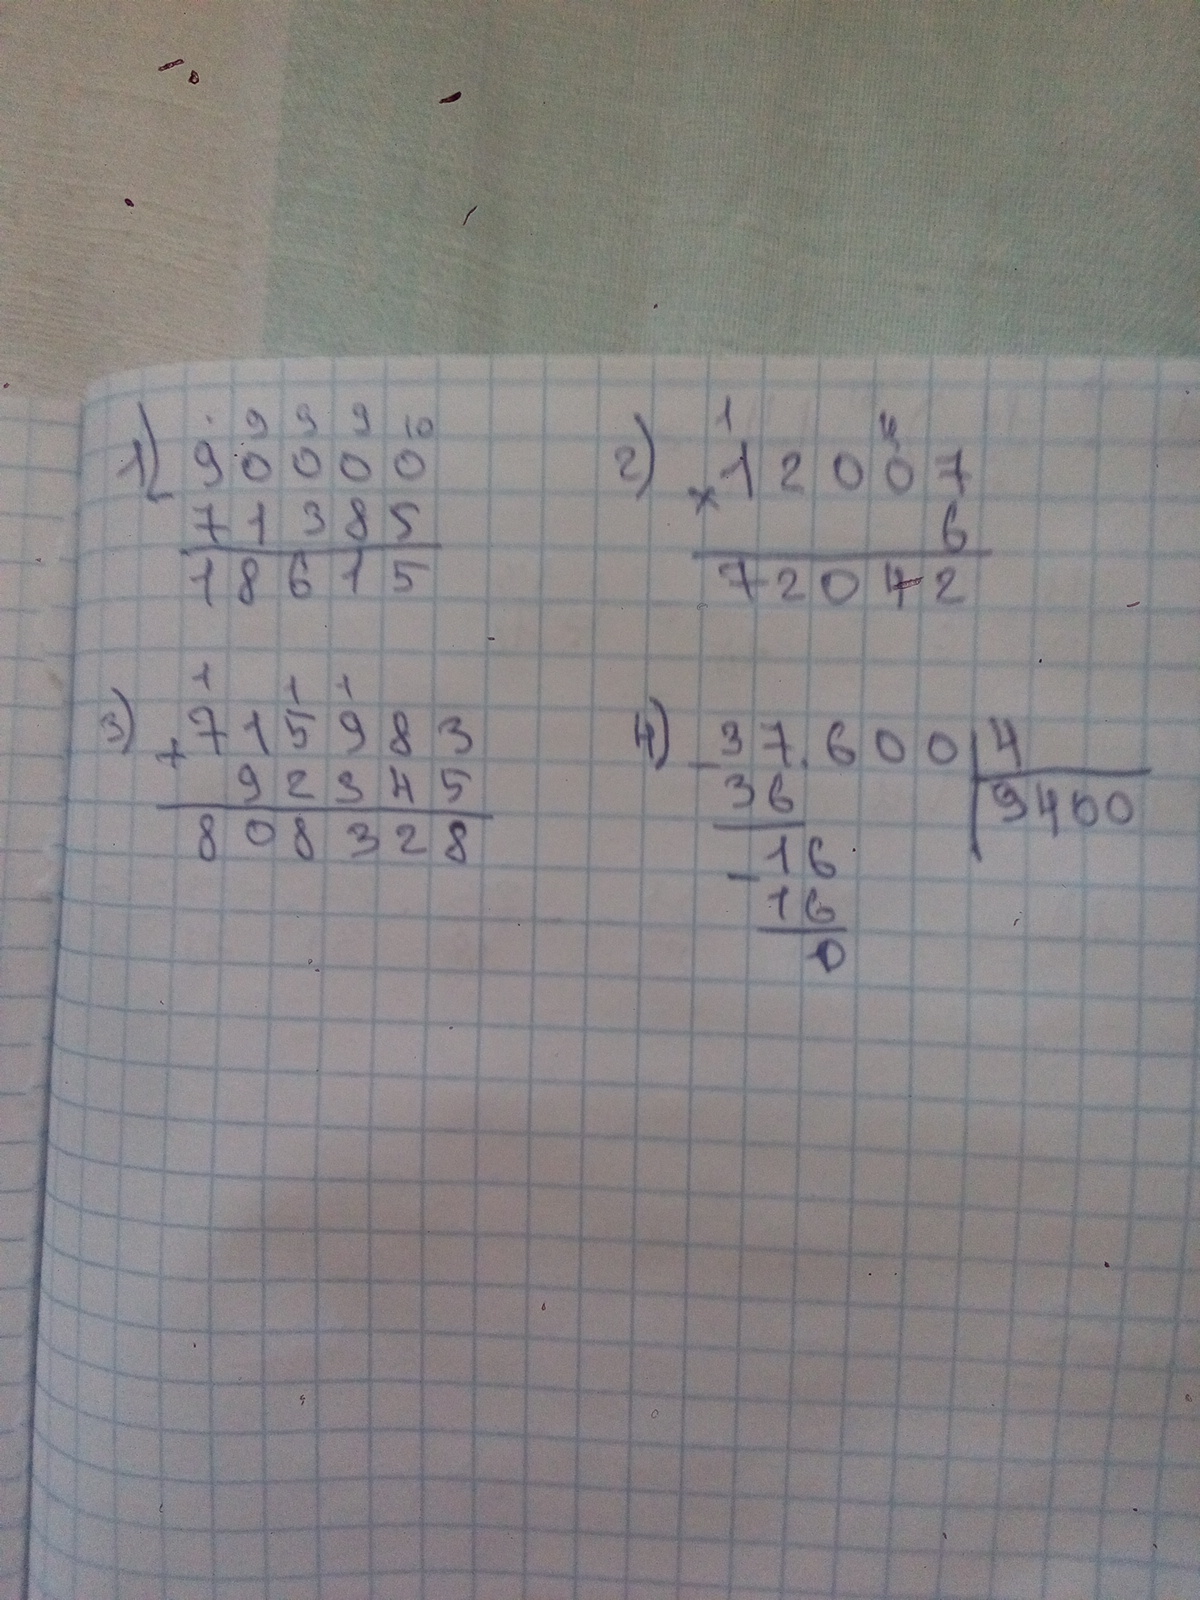 1) 9 9 9 10
- 90000
71385
18615
2) 1 4
× 12007
6
72042
3) 1 1 1
+ 715983
92345
808328
4) - 37.600 | 4
36 9400
- 16
16
0